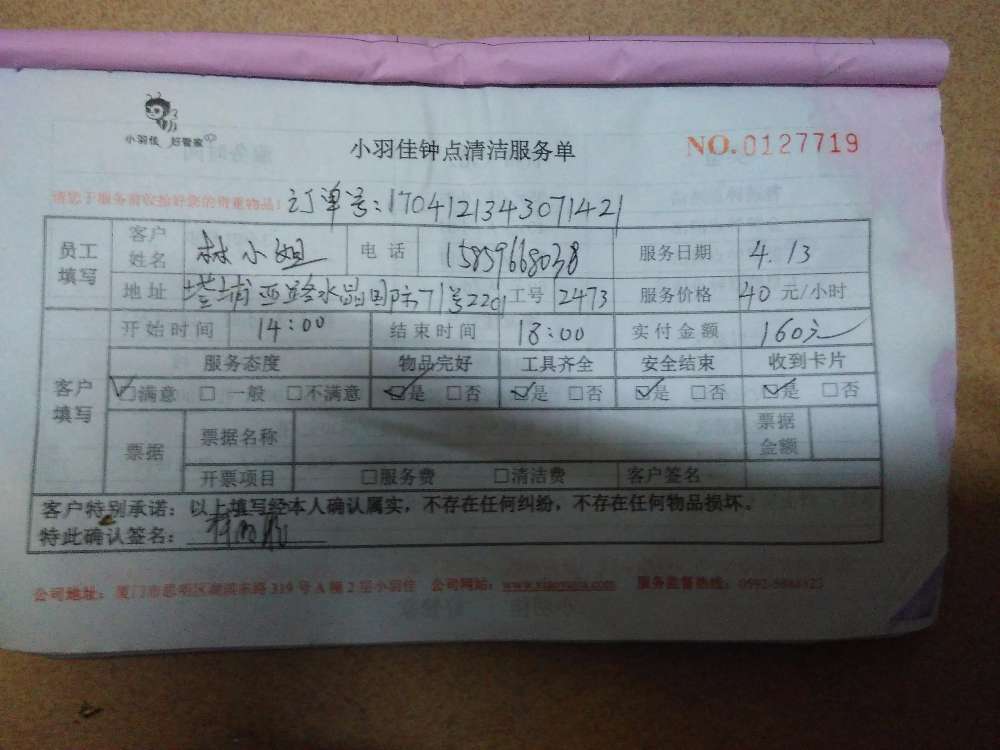 小羽佳 好管家
小羽佳钟点清洁服务单
NO.0127719
请您于服务前收拾好您的贵重物品! 订单号:1704121343071421
员工填写 客户姓名 林小姐 电话 15859668038 服务日期 4.13
地址 国际71号2201 工号 2473 服务价格 40 元/小时
客户填写 开始时间 14:00 结束时间 18:00 实付金额 160元
服务态度 物品完好 工具齐全 安全结束 收到卡片
☑满意 □一般 □不满意 ☑是 □否 ☑是 □否 ☑是 □否 ☑是 □否
票据 票据名称 票据金额
开票项目 □服务费 □清洁费 客户签名
客户特别承诺:以上填写经本人确认属实,不存在任何纠纷,不存在任何物品损坏。
特此确认签名:
公司地址:厦门市思明区湖滨东路319号A栋2层小羽佳 公司网站: 服务监督热线: